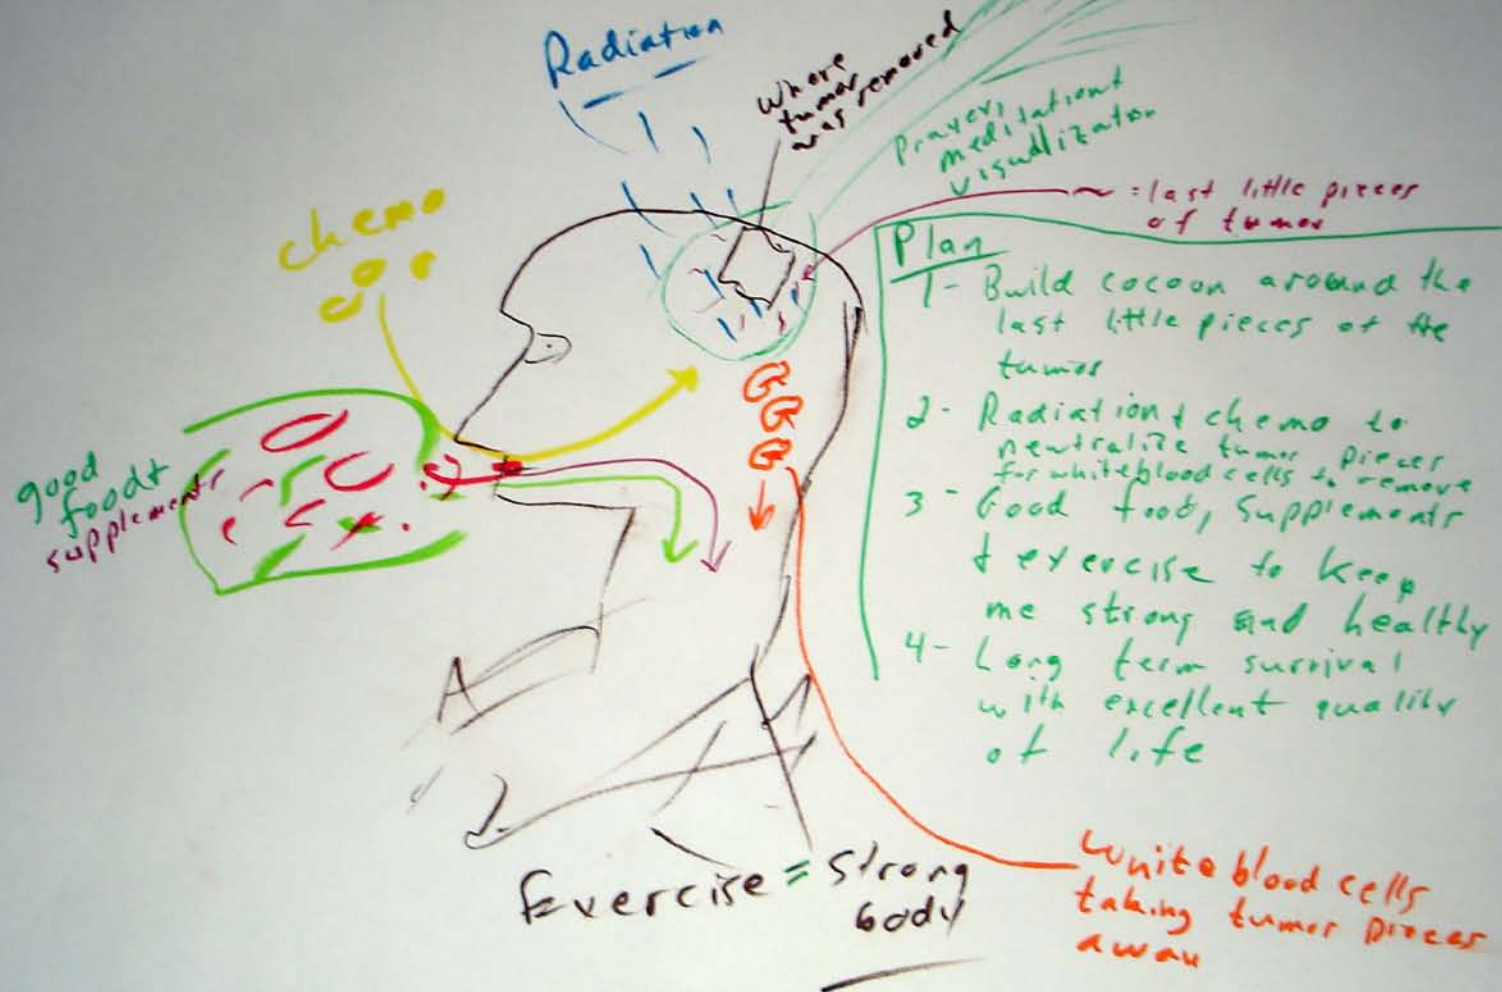 Radiation
where
tumor
was removed
Prayer,
meditation+
visuallization
chemo
~ = last little pieces
of tumor
Plan
1- Build cocoon around the
last little pieces of the
tumor
2- Radiation + chemo to
neutralize tumor pieces
for white blood cells to remove
3- Good food, supplements
+ exercise to keep
me strong and healthy
4- Long term survival
with excellent quality
of life
good
food+
supplements
Exercise = strong
body
white blood cells
taking tumor pieces
away